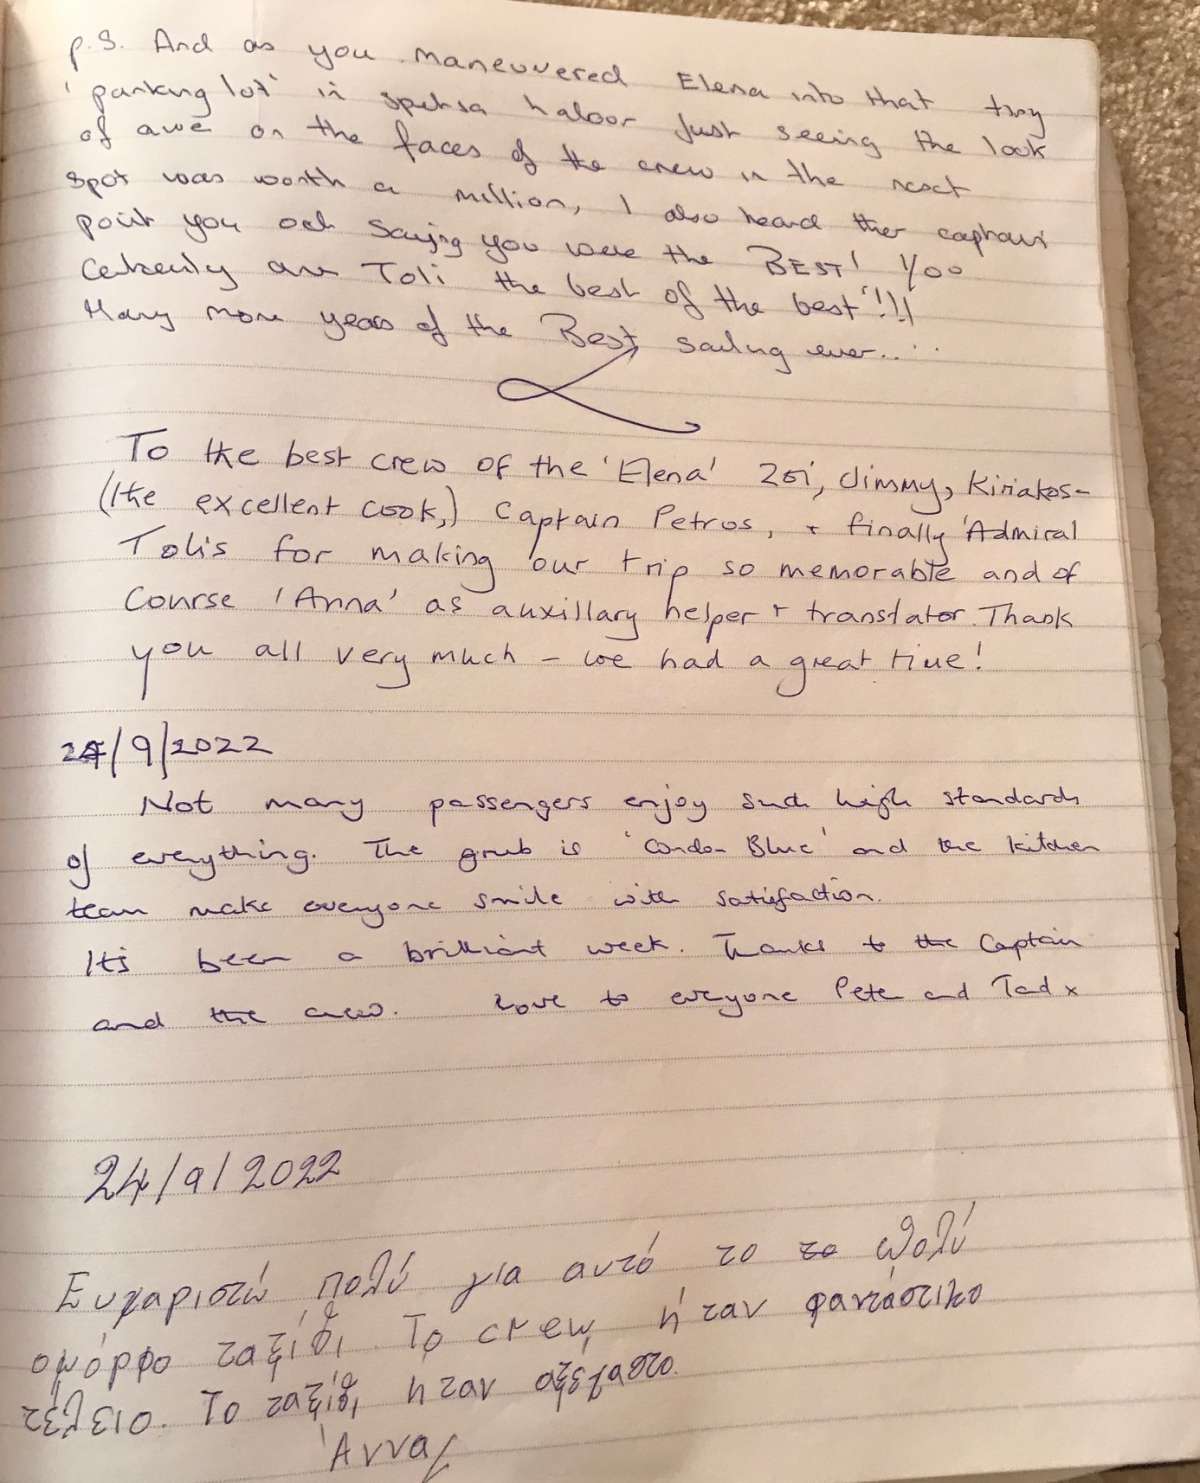 p.s. And as you maneuvered Elena into that tiny
'parking lot' in spetsa haboor Just seeing the look
of awe on the faces of the crew in the next
spot was worth a million, I also heard ther captain
point you out saying you were the BEST! You
Certenly are Toli the best of the best'!!!
Many more years of the Best sailing ever....
To the best crew of the 'Elena' Zoi, Jimmy, Kiriakos-
(the excellent cook,) Captain Petros, + finally 'Admiral
Tolis for making our trip so memorable and of
Course 'Anna' as auxillary helper + translator. Thank
you all very much – we had a great time!
24/9/2022
Not many passengers enjoy such high standards
of everything. The grub is 'Condon Blue' and the kitchen
team make everyone smile with satisfaction.
It's been a brilliant week. Thanks to the Captain
and the crew. Love to everyone Pete and Tad x
24/9/2022
Ευχαριστώ πολύ για αυτό το το πολύ
όμορφο ταξίδι. Το crew ήταν φανταστικο
τέλειο. Το ταξίδι ήταν
Άννα